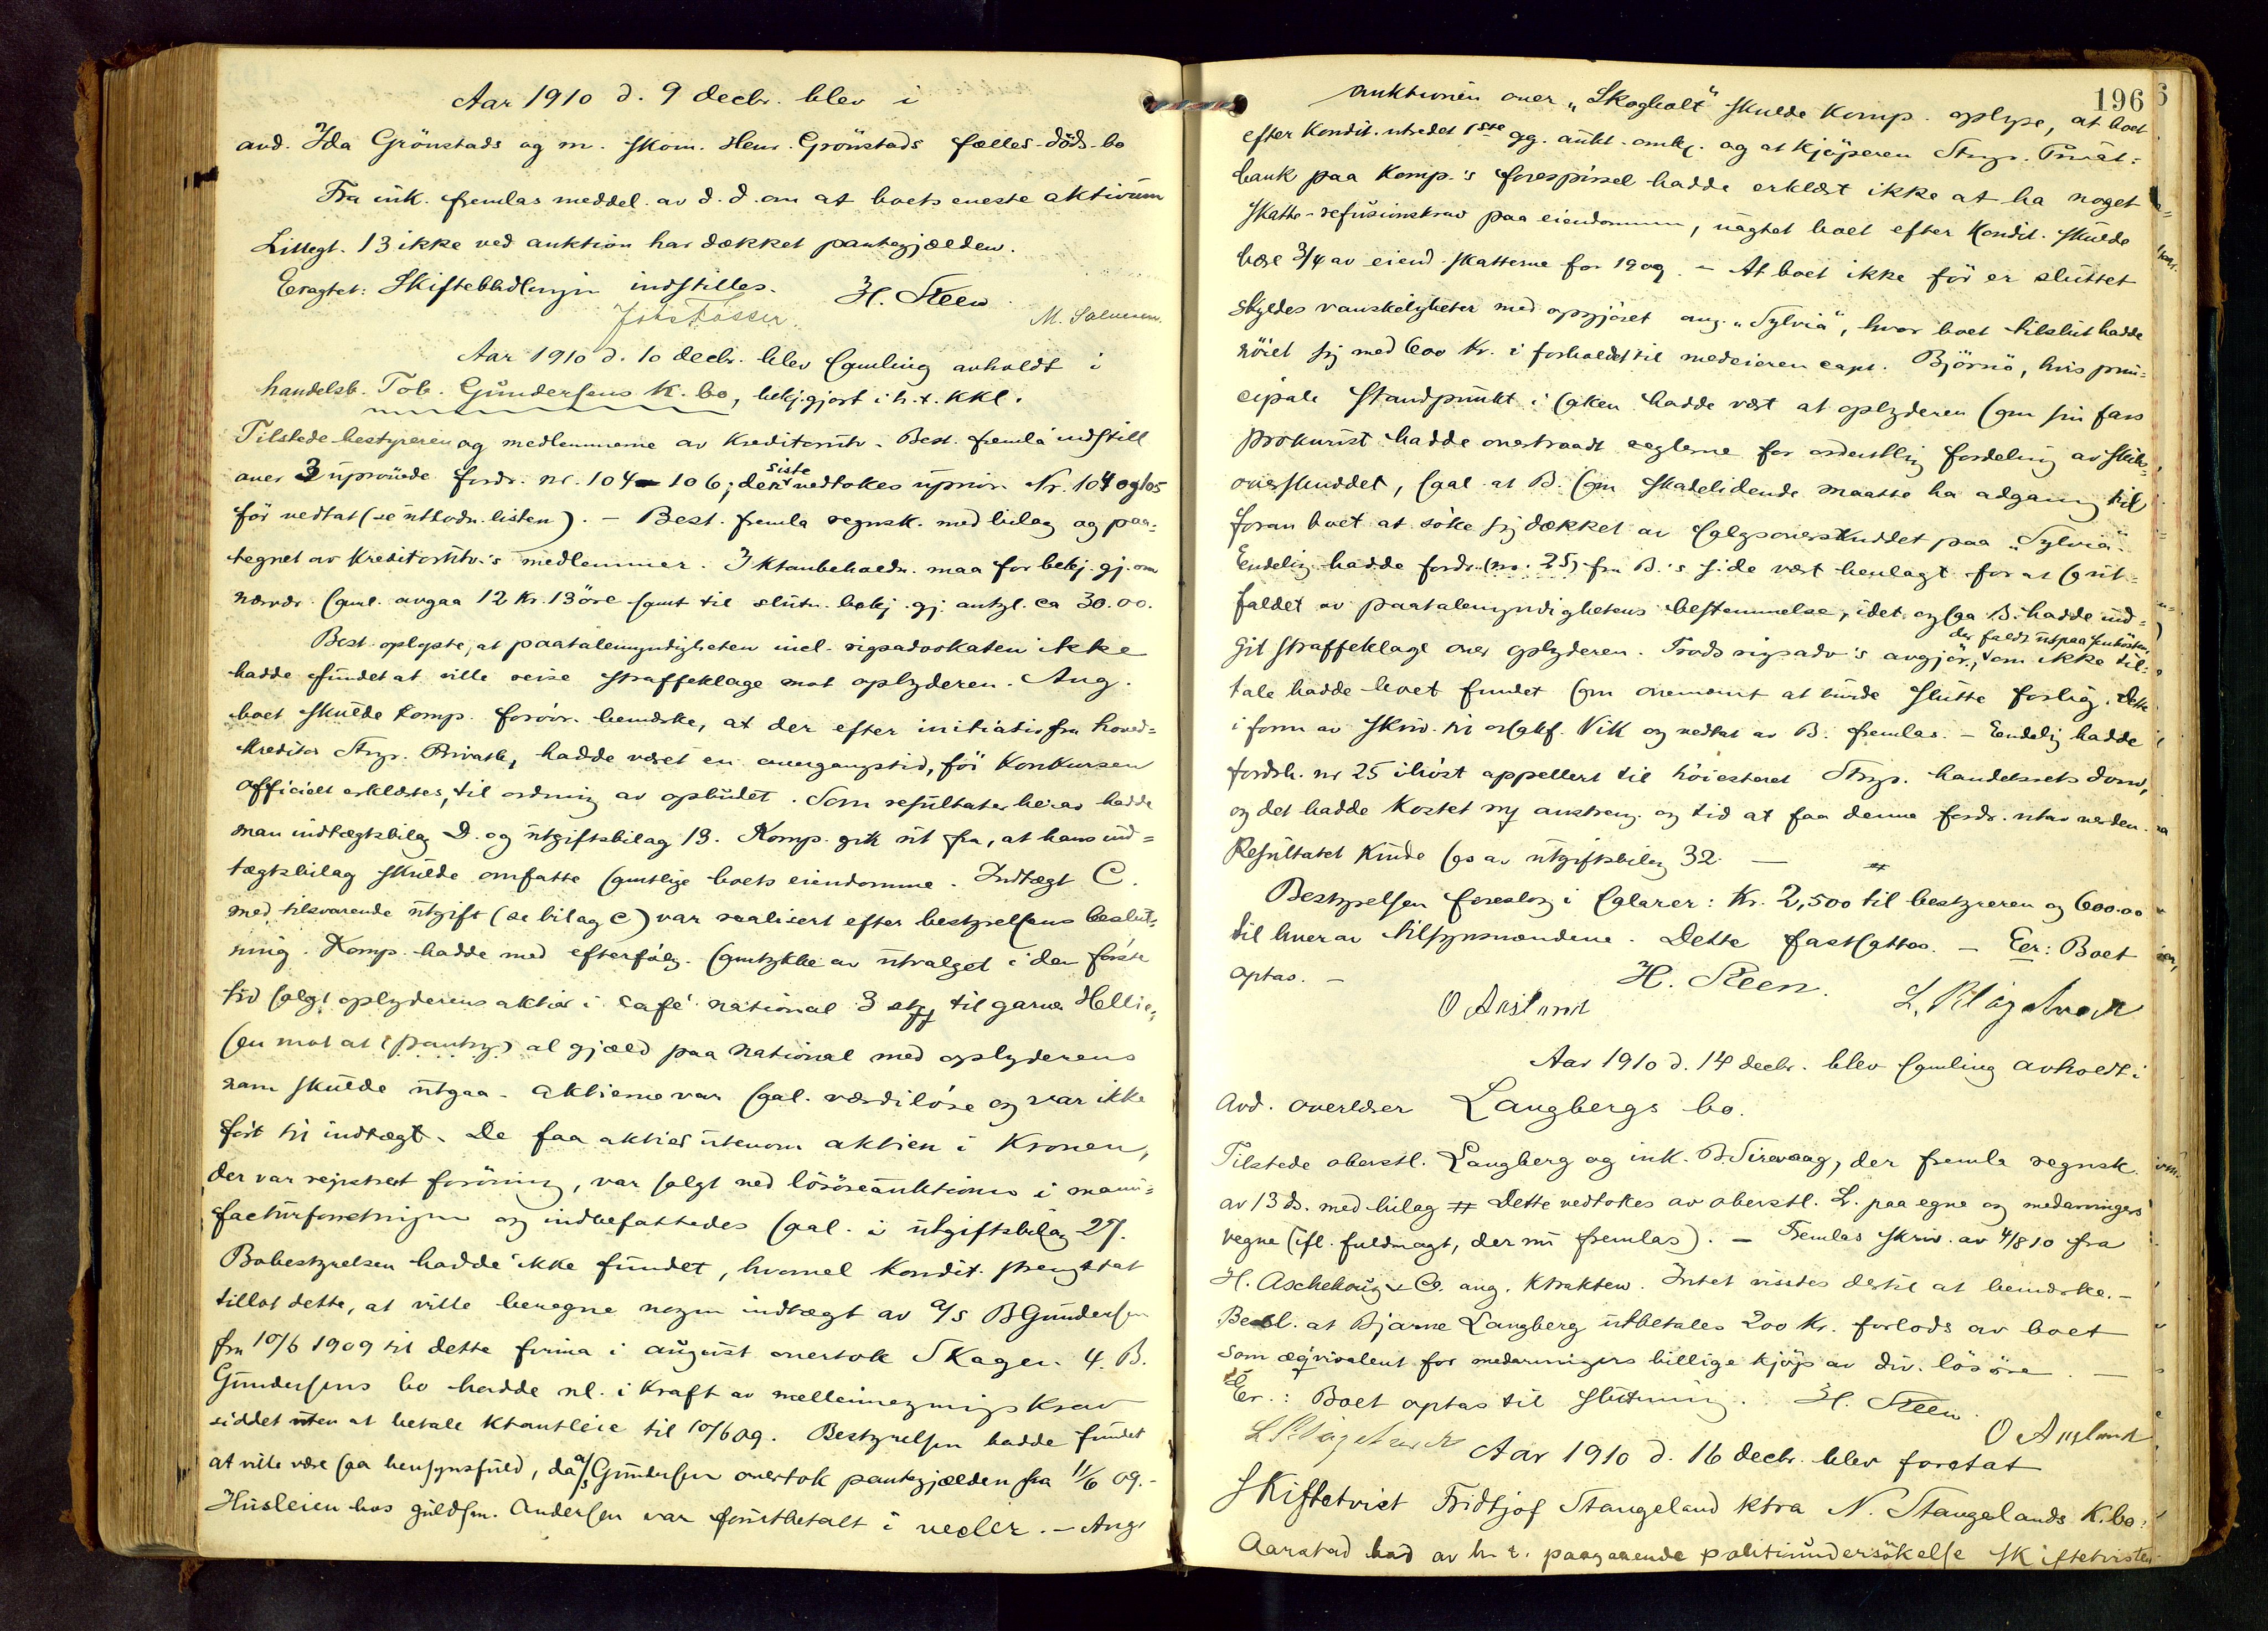 Aar 1910 d. 9 decbr. blev i
avd. Ida Grönstads og m. skom. Henr. Grönstads fælles-döds-bo
Fra ink. fremlas meddel. av d. d. om at boets eneste aktivum
Lillegt. 13 ikke ved auktion har dækket pantegjælden.
Eragtet: Skiftebhdlingen indstilles. H. Steen
M. Salvesen.
Aar 1910 d. 10 decbr. blev samling avholdt i
handelsb. Tob. Gundersens K. bo, bekj.gjort i h. t. KKl.
Tilstede bestyreren og medlemmerne av Kreditorutv. Best. fremla indstill
over 3 uprövede fordr. nr. 104 - 106; den siste vedtokes uprior. Nr. 104 og 105
för vedtat (se utlodn. listen). - Best. fremla regnsk. med bilag og paa-
tegnet av Kreditorutv.'s medlemmer. I Ktanbeholdn. maa for bekj. gj. om
nærvær. saml. avgaa 12 Kr. 13 öre samt til slutn. bekj. gj. antgl. ca 30.00.
Best. oplyste, at paatalemyndigheten incl. rigsadvokaten ikke
hadde fundet at ville reise straffeklage mot oplyderen. Ang.
boet skulde Komp. forövr. bemærke, at der efter initiativ fra hoved-
kreditor Stvgr. Privatb, hadde været en overgangstid, för Konkursen
officielt erklærtes, til ordning av opbudet. Som resultater herav hadde
man indtægtsbilag D. og utgiftsbilag 13. Komp. gik ut fra, at hans ind-
tægtsbilag skulde omfatte samtlige boets eiendomme. Indtægt C.
med tilsvarende utgift (se bilag C) var realisert efter bestyrelsens beslut-
ning. Komp. hadde med efterfölg. samtykke av utvalget i den förste
tid solgt oplyderens aktier i Café national 3 til garver Hellie-
sen mot at al gjæld paa National med oplyderens
navn skulde utgaa. Aktierne var saal. værdilöse og var ikke
fört til indtægt. De faa aktier utenom aktien i Kronen,
der var registrert foröning, var solgt ved lösöreauktionen i manu-
facturforretningen og indbefattedes saal. i utgiftsbilag 27.
Bobestyrelsen hadde ikke fundet, hvorvel Kondit. strengt tat
tillot dette, at ville beregne nogen indtægt av A/S B Gundersen
fra 10/6 1909 til dette firma i august overtok Skagen 4. B.
Gundersens bo hadde nl. i kraft av mellemregningskrav
siddet uten at betale Ktantleie til 10/6 09. Bestyrelsen hadde fundet
at ville være saa hensynsfuld, da A/S Gundersen overtok pantegjælden fra 11/6 09.-
Husleien hos guldsm. Andersen var forutbetalt i vexler. - Ang.
196
auktionen over "Skogholt" skulde Komp. oplyse, at boet
efter Kondit. utredet 1ste gg. aukt. omk. og at kjöperen Stvgr. Privat-
bank paa Komp.'s forespörsel hadde erklært ikke at ha noget
skatte-refusionskrav paa eiendommen, uagtet boet efter Kondit. skulde
bære 3/4 av eiend. skatterne for 1909. - At boet ikke för er sluttet
skyldes vanskeligheter med opgjöret ang. "Sylvia", hvor boet tilslut hadde
nöiet sig med 600 Kr. i forholdet til medeieren capt. Björnö, hvis prin-
cipale standpunkt i saken hadde vært at oplyderen som sin fars
prokurist hadde overtraadt reglerne for ordentlig fordeling av skibs-
overskuddet, saal. at B. som skadelidende maatte ha adgang til
foran boet at söke sig dækket av salgsoverskuddet paa "Sylvia".
Endelig hadde fordr. (nr. 25) fra B.'s side vært henlagt for at se ut-
faldet av paatalemyndighetens bestemmelse, idet ogsaa B. hadde ind-
git straffeklage over oplyderen. Trods rigsadv's avgjör., der faldt ut paa senhösten, om ikke til-
tale hadde boet fundet som ovennævnt at burde slutte forlig. Dette
i form av skriv. til orsakf. Vik og vedtat av B. fremlas. - Endelig hadde
fordrh. nr 25 ihöst appellert til höiesteret Stvgr. handelsrets dom,
og det hadde kostet ny anstreng. og tid at faa denne fordr. utav verden.
Resultatet kunde ses av utgiftsbilag 32. -
Bestyrelsen foreslog i salarer: Kr. 2,500 til bestyreren og 600.00
til hver av tilsynsmændene. Dette fastsattes. - Eer: Boet
optas. -
H. Steen.
O Aasland
Aar 1910 d. 14 decbr. blev samling avholdt i
Avd. overlærer Langbergs bo.
Tilstede oberstl. Langberg og ink. B. Sirevaag, der fremla regnsk.
av 13 ds. med bilag # Dette vedtokes av oberstl. L. paa egne og medarvingers
vegne (ifl. fuldmagt, der nu fremlas). - Fremlas skriv. av 4/8 10 fra
H. Aschehoug & Co. ang. Ktrakten. Intet visstes dertil at bemærke. -
Besl. at Bjarne Langberg utbetales 200 Kr. forlods av boet
som æqvivalent for medarvingers billige kjöp av div. lösöre. -
Eer.: Boet optas til slutning. H. Steen.
O Aasland
Aar 1910 d. 16 decbr. blev foretat
Skiftetvist Fridtjof Stangeland ktra N. Stangelands K. bo:
Aarstad bad av h. t. paagaaende politiundersökelse skiftetvisten